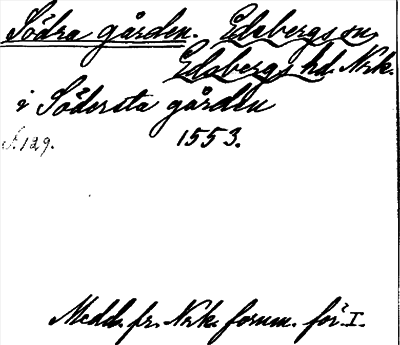 Södra gården. Edsbergs sn,
Edsbergs hd. Nrk.
i Södersta gården
s. 129. 1553.
Medd. fr. Nrk. fornm. för. I.